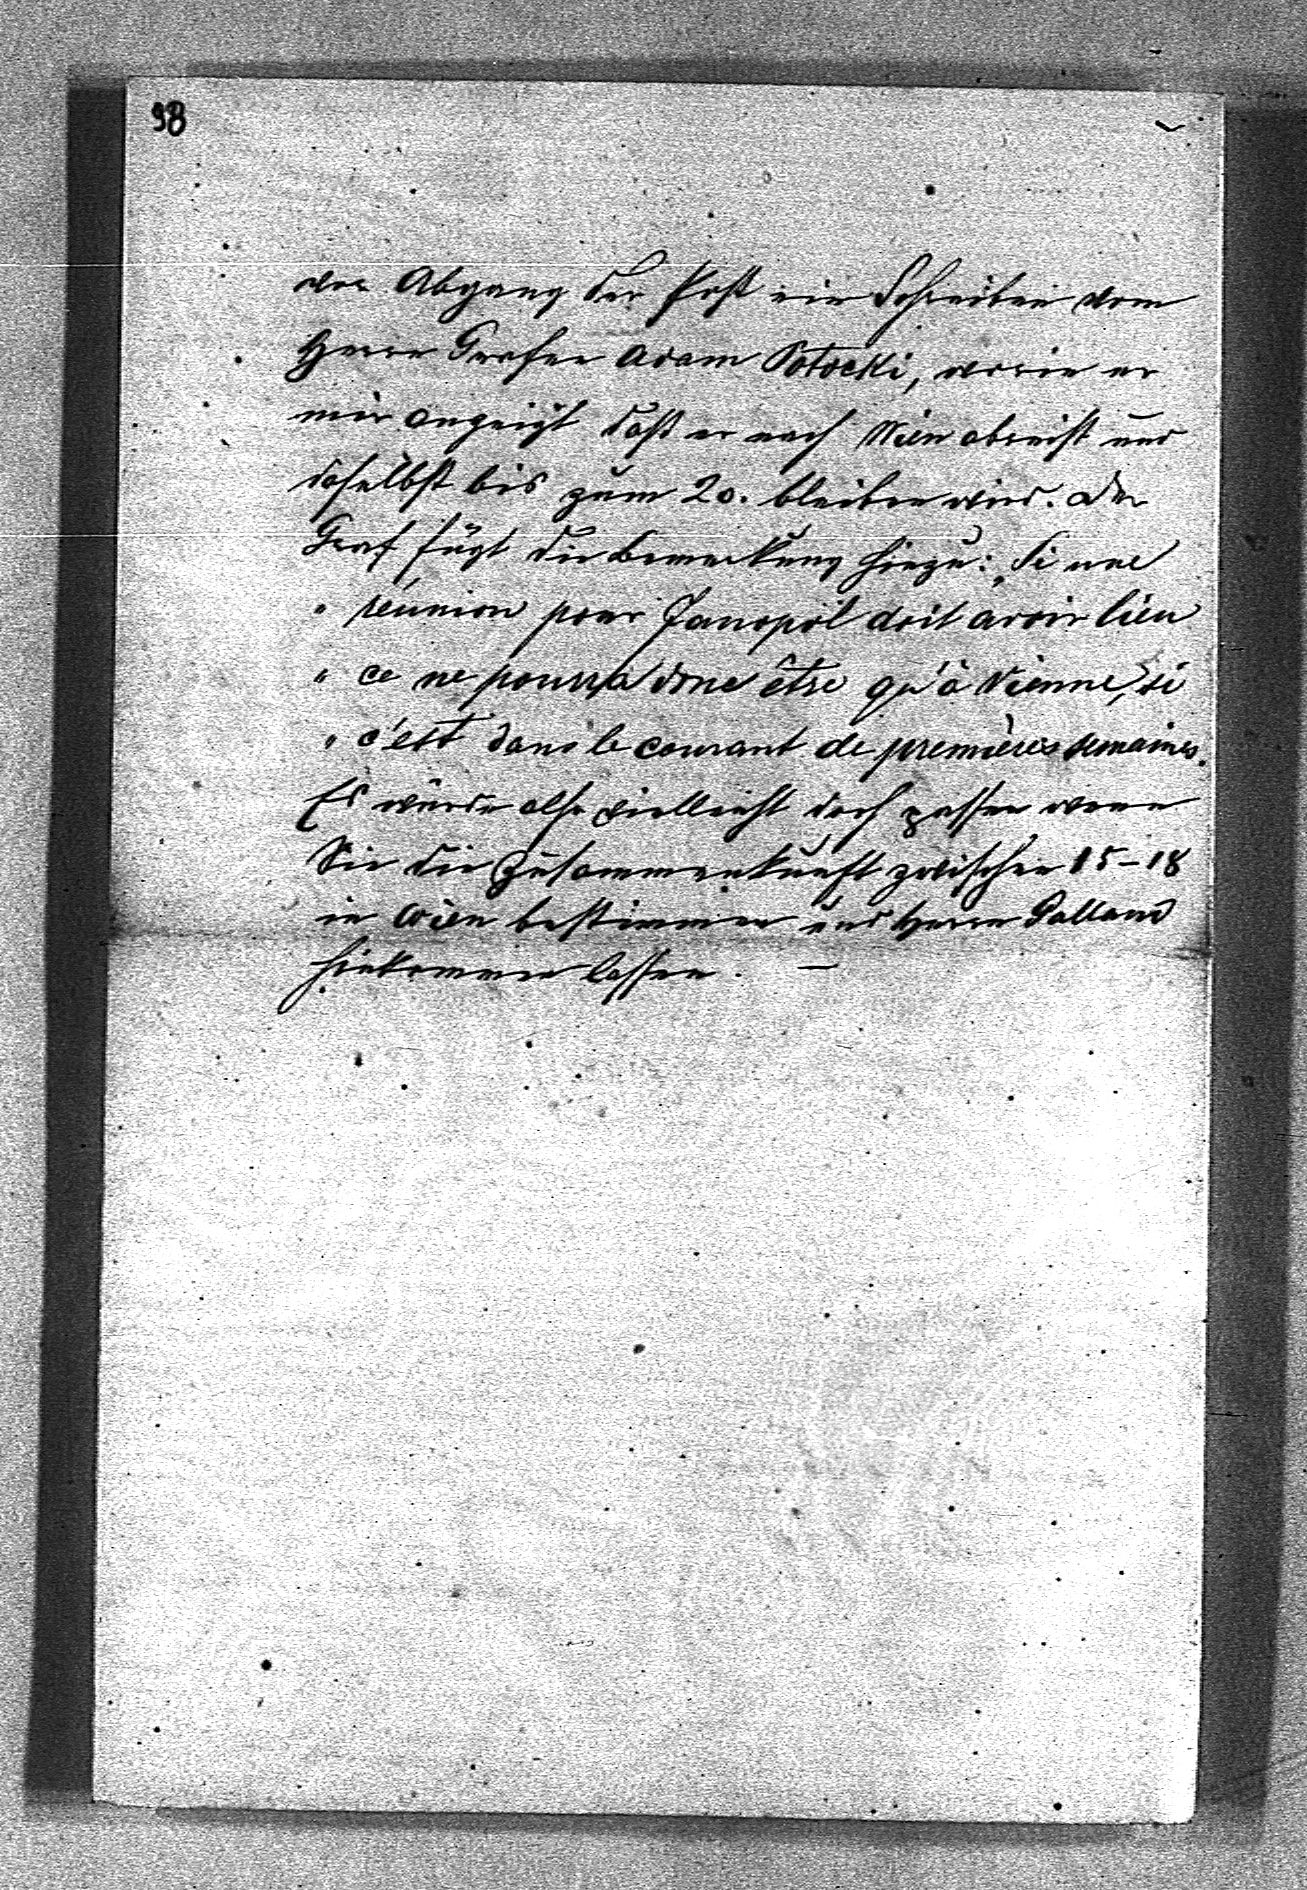 98
vor Abgang der Post ein Schreiben vom
Herrn Grafen Adam Potocki, worin er
mir anzeigt daß er nach Wien abreist und
daselbst bis zum 20. bleiben wird. Der
Graf fügt die Bemerkung hinzu: „Si une
" réunion pour Janopol doit avoir lieu
" ce ne pourra donc être qu'à Vienne, si
" c'est dans le courant de premières semaines.
Es würde also vielleicht doch passen wenn
Sie die Zusammenkunft zwischen 15-18
in Wien bestimmen und Herrn Galland
hinkommen lassen. —